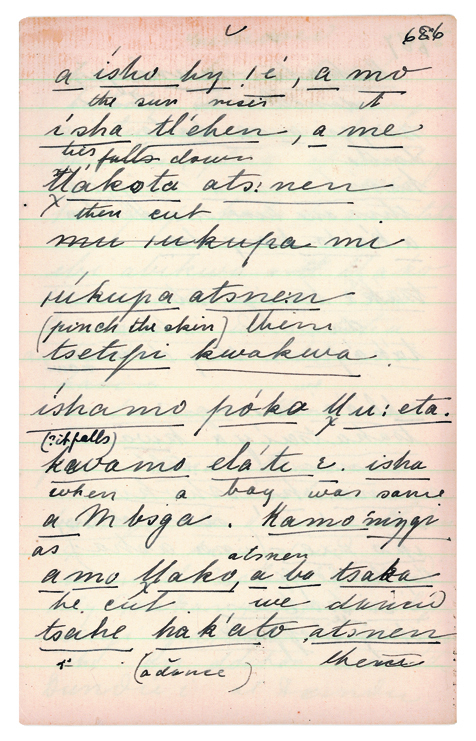 686
a ísho hy !é, a mo
the sun rises it
ísha tl'ehen, a me
lies falls down
tlákota ats:nen
x then cut
mu !ukupa mi
!úkupa atsnen
(pinch the skin) them
tsetipi kwakwa.
íshamo póko
(? it falls)
kavamo eláte isha
when a boy was same
a Mbsga. Kamo
as atsnen
amo ako, a ba tsaka
he cut we dance
tsahe hak'ato atsnen
it (a dance) thence